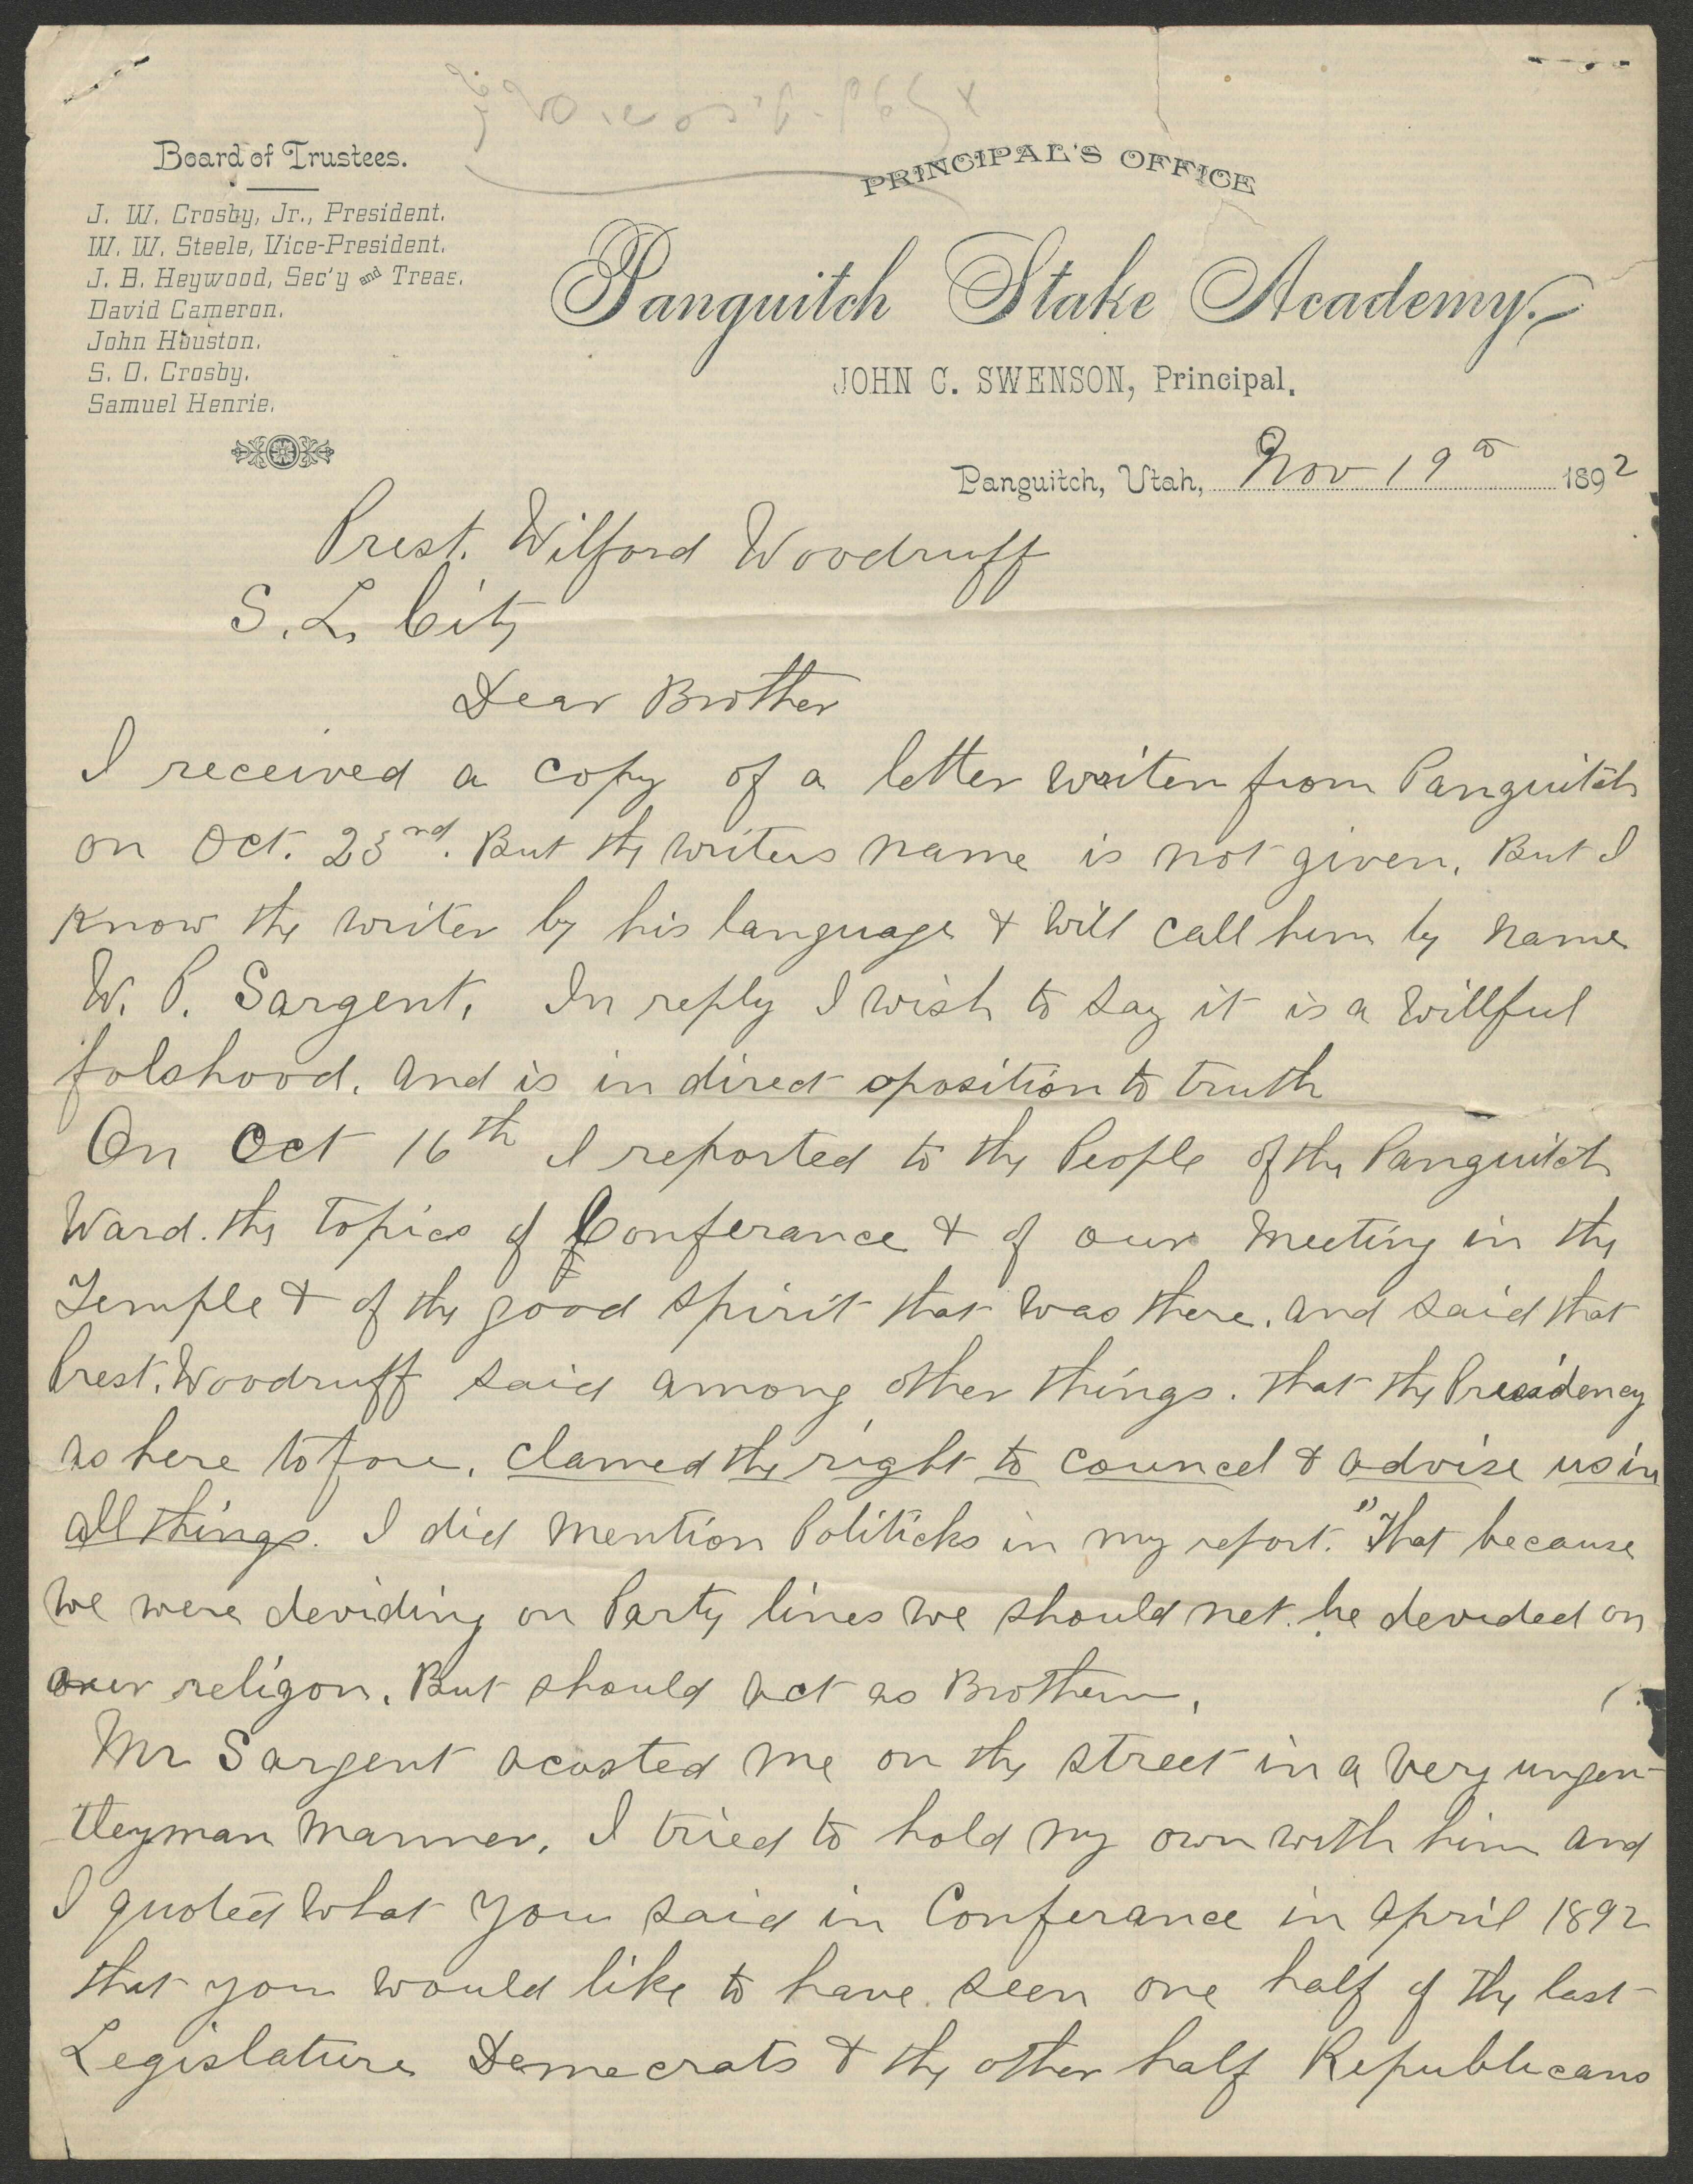 Board of Trustees.
J. W. Crosby, Jr., President.
W. W. Steele, Vice-President.
J. B. Heywood, Sec'y and Treas.
David Cameron.
John Houston.
S. O. Crosby.
Samuel Henrie.
PRINCIPAL'S OFFICE
Panguitch Stake Academy.
JOHN C. SWENSON, Principal.
Panguitch, Utah, Nov 19 1892
Prest. Wilford Woodruff
S. L. City
Dear Brother
I received a copy of a letter writen from Panguitch
on Oct. 23rd. But the writers name is not given. But I
know the writer by his language & will call him by name
W. P. Sargent. In reply I wish to say it is a willful
folshood. and is in direct oposition to truth
On Oct 16th I reported to the People of the Panguitch
Ward. the topics of Conferance & of our meeting in the
Temple & of the good spirit that was there. and said that
Prest. Woodruff said among other things. that the Presidency
as here to fore. clamed the right to councel & advise us in
all things. I did mention Politicks in my report. "That because
we were deviding on Party lines we should not be devided on
our religon. But should act as Brothern.
Mr Sargent acosted me on the street in a very ungen-
tleyman manner. I tried to hold my own with him and
I quoted what you said in Conferance in April 1892
that you would like to have seen one half of the last
Legislature Democrats & the other half Republicans